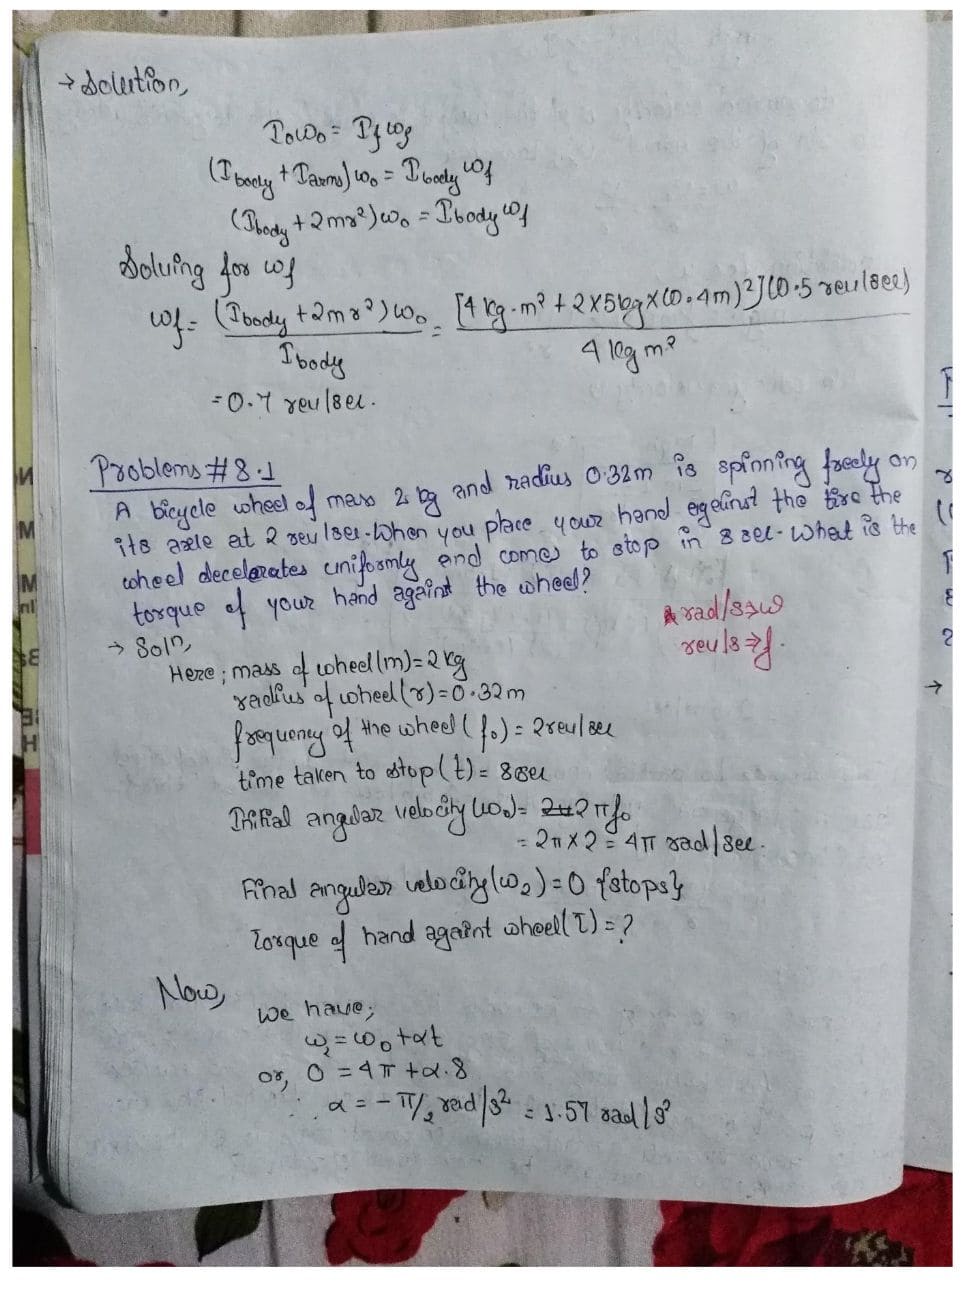 → Solution,
I₀ω₀ = I_f ω_f
(I_body + I_arms) ω₀ = I_body ω_f
(I_body + 2mr²) ω₀ = I_body ω_f
Solving for ω_f
ω_f = (I_body + 2mr²) ω₀ / I_body = [4 kg·m² + 2×5kg×(0.4m)²](0.5 rev/sec) / 4 kg m²
= 0.7 rev/sec.
Problems # 8.1
A bicycle wheel of mass 2 kg and radius 0.32m is spinning freely on
its axle at 2 rev/sec. When you place your hand against the tire the
wheel decelerates uniformly and comes to stop in 8 sec. What is the
torque of your hand against the wheel?
rad/s⇒ω
rev/s⇒f.
→ Soln,
Here; mass of wheel (m) = 2 kg
radius of wheel (r) = 0.32m
frequency of the wheel (f₀) = 2 rev/sec
time taken to stop (t) = 8 sec
Initial angular velocity (ω₀) = 2πf₀
= 2π × 2 = 4π rad/sec.
Final angular velocity (ω₂) = 0 {stops}
Torque of hand againt wheel (τ) = ?
Now,
we have;
ω₂ = ω₀ + αt
or, 0 = 4π + α.8
∴ α = -π/2 rad/s² = 1.57 rad/s²